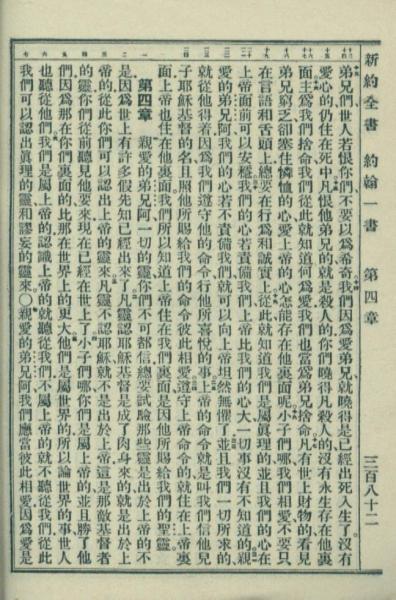 新約全書 約翰一書 第四章 三百八十二
弟兄們世人若恨你們不要以爲希奇我們因爲愛弟兄就曉得是已經出死入生了沒有
愛心的仍住在死中凡恨他弟兄的就是殺人的你們曉得凡殺人的沒有永生存在他裏
面主爲我們捨命我們從此就知道何爲愛我們也當爲弟兄捨命凡有世上財物的看見
弟兄窮乏卻塞住憐恤的心愛上帝的心怎能存在他裏面呢小子們哪我們相愛不要只
在言語和舌頭上總要在行爲和誠實上從此就知道我們是屬眞理的並且我們的心在
上帝面前可以安穩我們的心若責備我們上帝比我們的心大一切事沒有不知道的親
愛的弟兄阿我們的心若不責備我們就可以向上帝坦然無懼了並且我們一切所求的
就從他得着因爲我們遵守他的命令行他所喜悅的事上帝的命令就是叫我們信他兒
子耶穌基督的名且照他所賜給我們的命令彼此相愛遵守上帝命令的就住在上帝裏
面上帝也住在他裏面我們所以知道上帝住在我們裏面是因他所賜給我們的聖靈
第四章 親愛的弟兄阿一切的靈你們不可都信總要試驗那些靈是出於上帝的不
是因爲世上有許多假先知已經出來了凡靈認耶穌基督是成了肉身來的就是出於上
帝的從此你們可以認出上帝的靈來凡靈不認耶穌就不是出於上帝這是那敵基督者
的靈你們從前聽見他要來現在已經在世上了小子們哪你們是屬上帝的並且勝了他
們因爲那在你們裏面的比那在世界上的更大他們是屬世界的所以論世界的事世人
也聽從他們我們是屬上帝的認識上帝的就聽從我們不屬上帝的就不聽從我們從此
我們可以認出眞理的靈和謬妄的靈來○親愛的弟兄阿我們應當彼此相愛因爲愛是